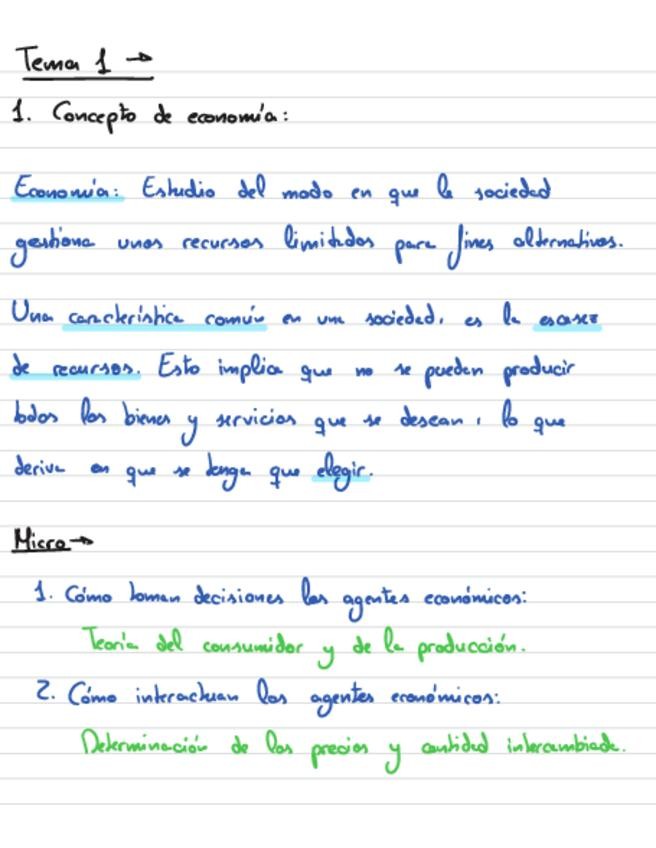 Tema 1 →
1. Concepto de economía:
Economía: Estudio del modo en que la sociedad
gestiona unos recursos limitados para fines alternativos.
Una característica común en una sociedad, es la escasez
de recursos. Esto implica que no se pueden producir
todos los bienes y servicios que se desean, lo que
deriva en que se tenga que elegir.
Micro →
1. Cómo toman decisiones los agentes económicos:
Teoría del consumidor y de la producción.
2. Cómo interactuan los agentes económicos:
Determinación de los precios y cantidad intercambiada.